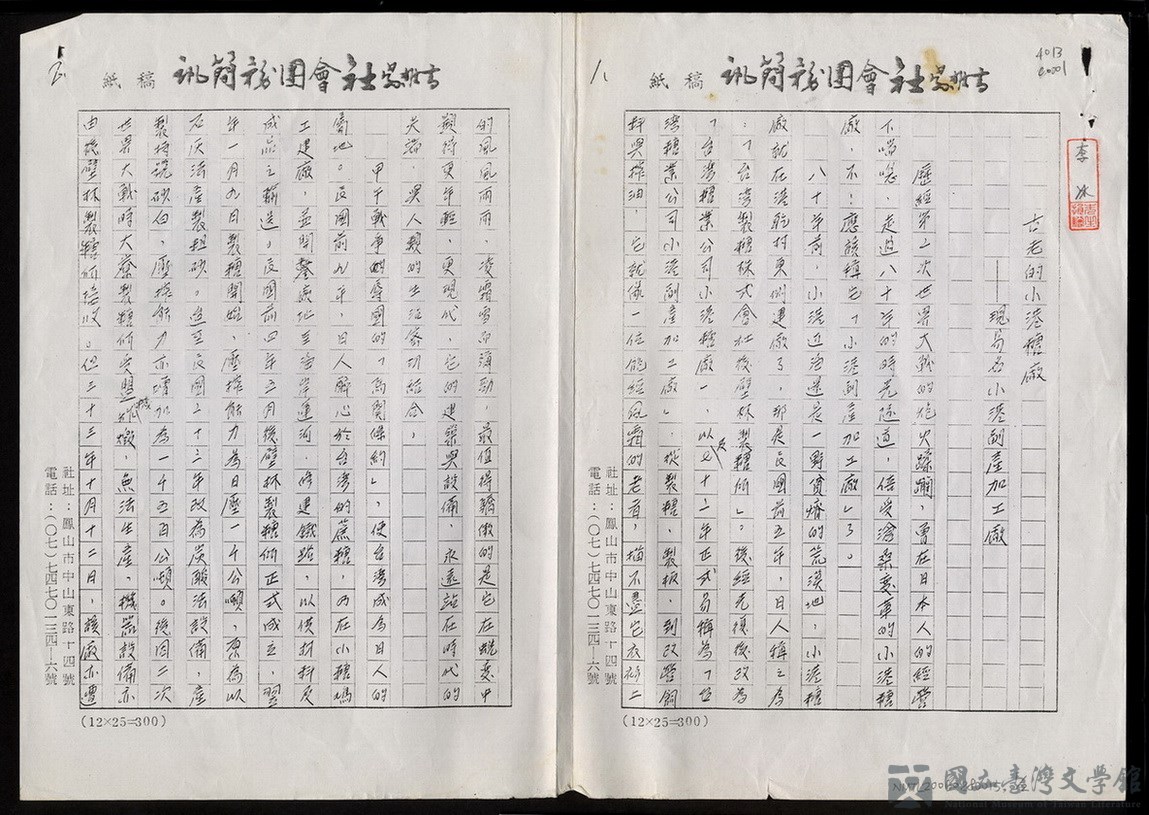 4013
李冰
社會團務簡訊 稿紙
1
古老的小港糖廠
——現易名小港副產加工廠
歷經第二次世界大戰的炮火蹂躪，曾在日本人的經營
下喘喘，走過八十年的時光隧道，倍受滄桑變革的小港糖
廠，不！應該稱它「小港副產加工廠」了。
八十年前，小港近海還是一野貧瘠的荒漠地，小港糖
廠就在港的村東側建廠了，那是民國前五年，日人稱之為
：「台灣製糖株式會社後壁林製糖所」。後經光復後改為
「台灣糖業公司小港糖廠」，以及七十二年正式易稱為「台
灣糖業公司小港副產加工廠」，從製糖、製板、到改營飼
料與搾油，它就像一位飽經風霜的老者，描不盡它衣衫上
社址：鳳山市中山東路十四號
電話：（○七）七四七○一三四—六號
(12×25=300)
社會團務簡訊 稿紙
2
的風風雨雨，凌霜雪而彌勁，最值得驕傲的是它在蛻變中
顯得更年輕、更現代，它的建築與設備，永遠站在時代的
尖端，與人類的生活密切結合，
甲午戰爭的辱國的「馬關條約」，使台灣成為日人的
殖地。民國前九年，日人醉心於台灣的蔗糖，乃在小港鳩
工建廠，並開鑿廠地至海岸運河，修建鐵路，以供材料及
成品之輸送。民國前四年五月後壁林製糖所正式成立，翌
年一月九日製糖開始，壓榨能力為日壓一千公噸，原為以
石灰法產製粗砂。迨至民國二十三年改為炭酸法設備，產
製特號砂白，壓榨能力亦增加為一千五百公噸。後因二次
世界大戰時大寮製糖所受盟機炸燬，無法生產，機器設備亦
由後壁林製糖所接收。但三十三年十月十二日，該廠亦遭
社址：鳳山市中山東路十四號
電話：（○七）七四七○一三四—六號
(12×25=300)
國立臺灣文學館
National Museum of Taiwan Literature